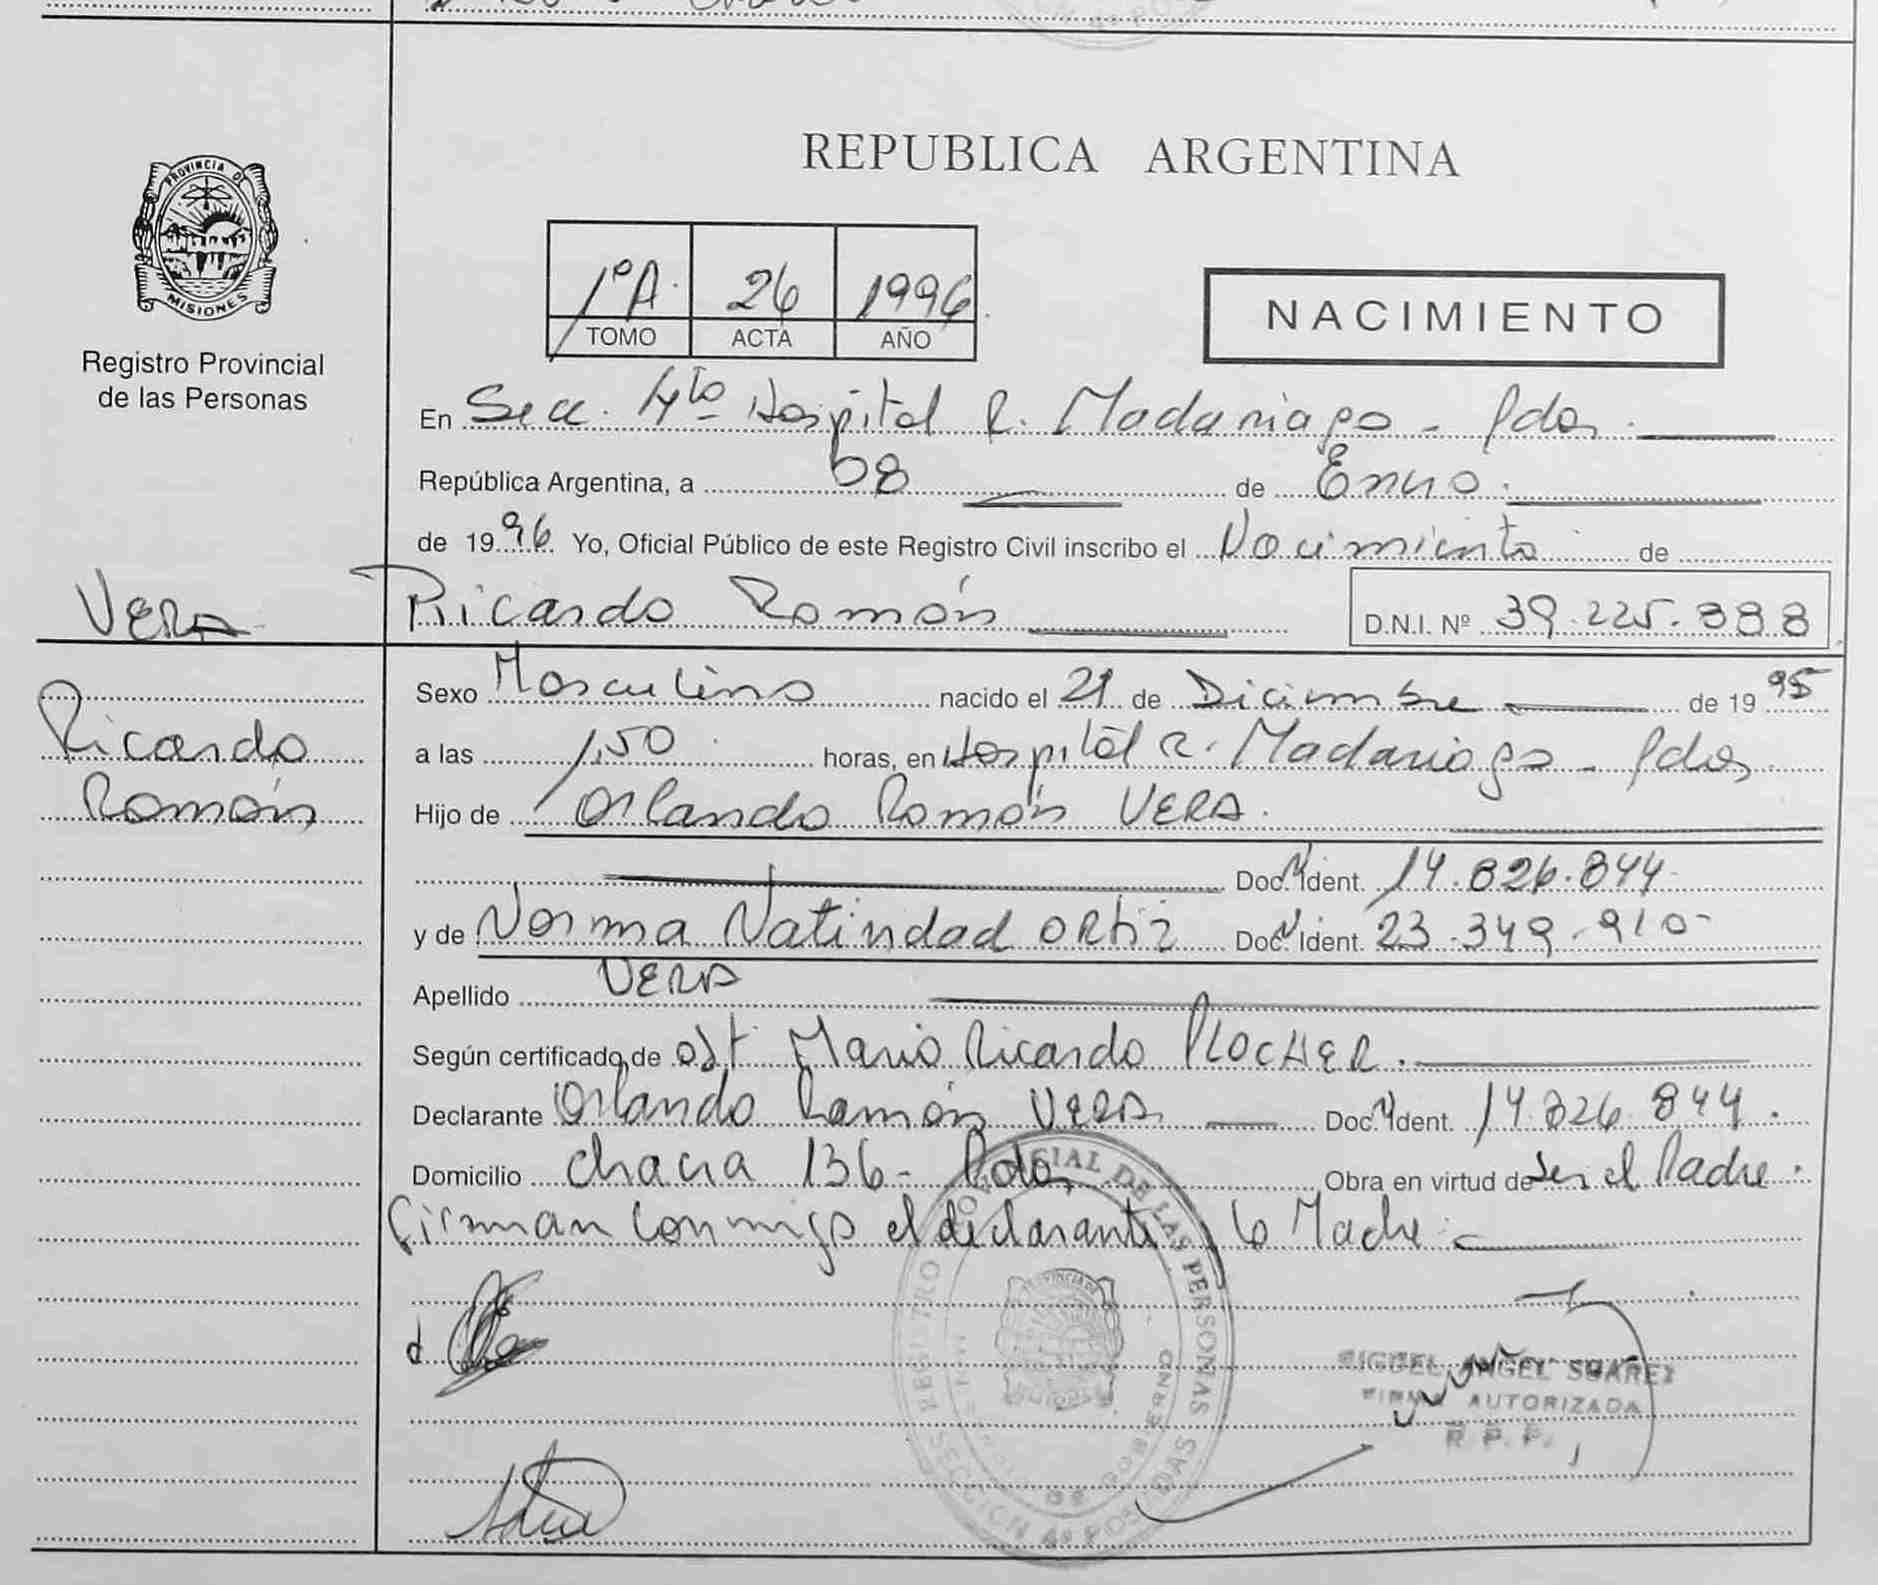 REPUBLICA ARGENTINA
PROVINCIA DE
MISIONES
Registro Provincial
de las Personas
1º A. 26 1996
TOMO ACTA AÑO
NACIMIENTO
En Secc. 4ta Hospital R. Madariaga - Pdas.
República Argentina, a 08 de Enero.
de 1996 Yo, Oficial Público de este Registro Civil inscribo el Nacimiento de
VERA Ricardo Ramón D.N.I. Nº 39.225.388
Sexo Masculino nacido el 21 de Diciembre de 1995
Ricardo
a las 1,50 horas, en Hospital R. Madariaga - Pdas
Ramón
Hijo de Orlando Ramón VERA.
Doc. Ident. 14.826.844
y de Norma Natindad ORtiz Doc. Ident. 23.349.910
Apellido VERA
Según certificado de obst. Mario Ricardo PLOCHER.
Declarante Orlando Ramón VERA Doc. Ident. 14.826.844.
Domicilio chacra 136 - Pdas, Obra en virtud de Ser el Padre.
Firman conmigo el declarante y la Madre.
REGISTRO PROVINCIAL DE LAS PERSONAS
SECCION 4ª POSADAS
PROVINCIA DE
MIGUEL ANGEL SUAREZ
FIRMA AUTORIZADA
R. P. P.